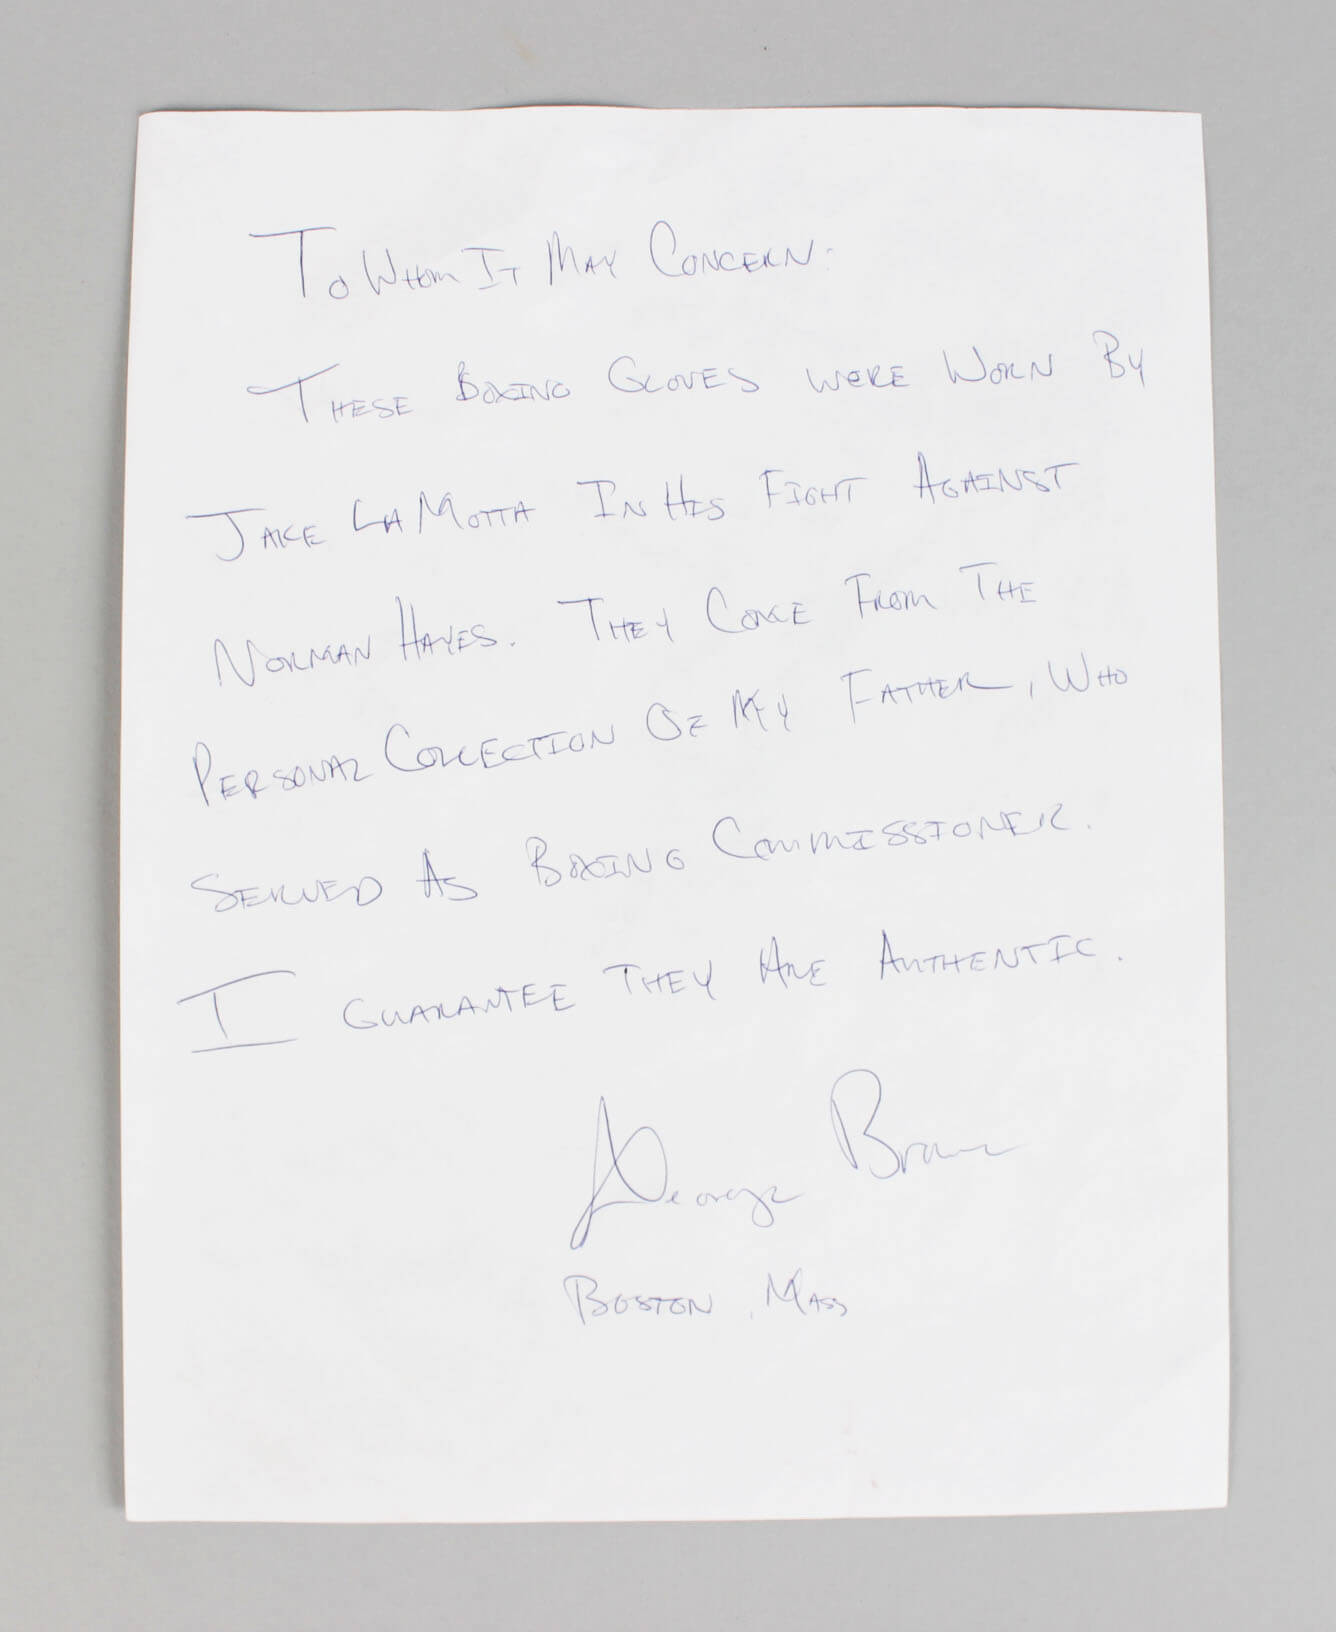 To Whom It May Concern:
These Boxing Gloves were Worn By
Jake LaMotta In His Fight Against
Norman Hayes. They Come From The
Personal Collection Of My Father, Who
Served As Boxing Commissioner.
I guarantee They Are Authentic.
George
Boston, Mass